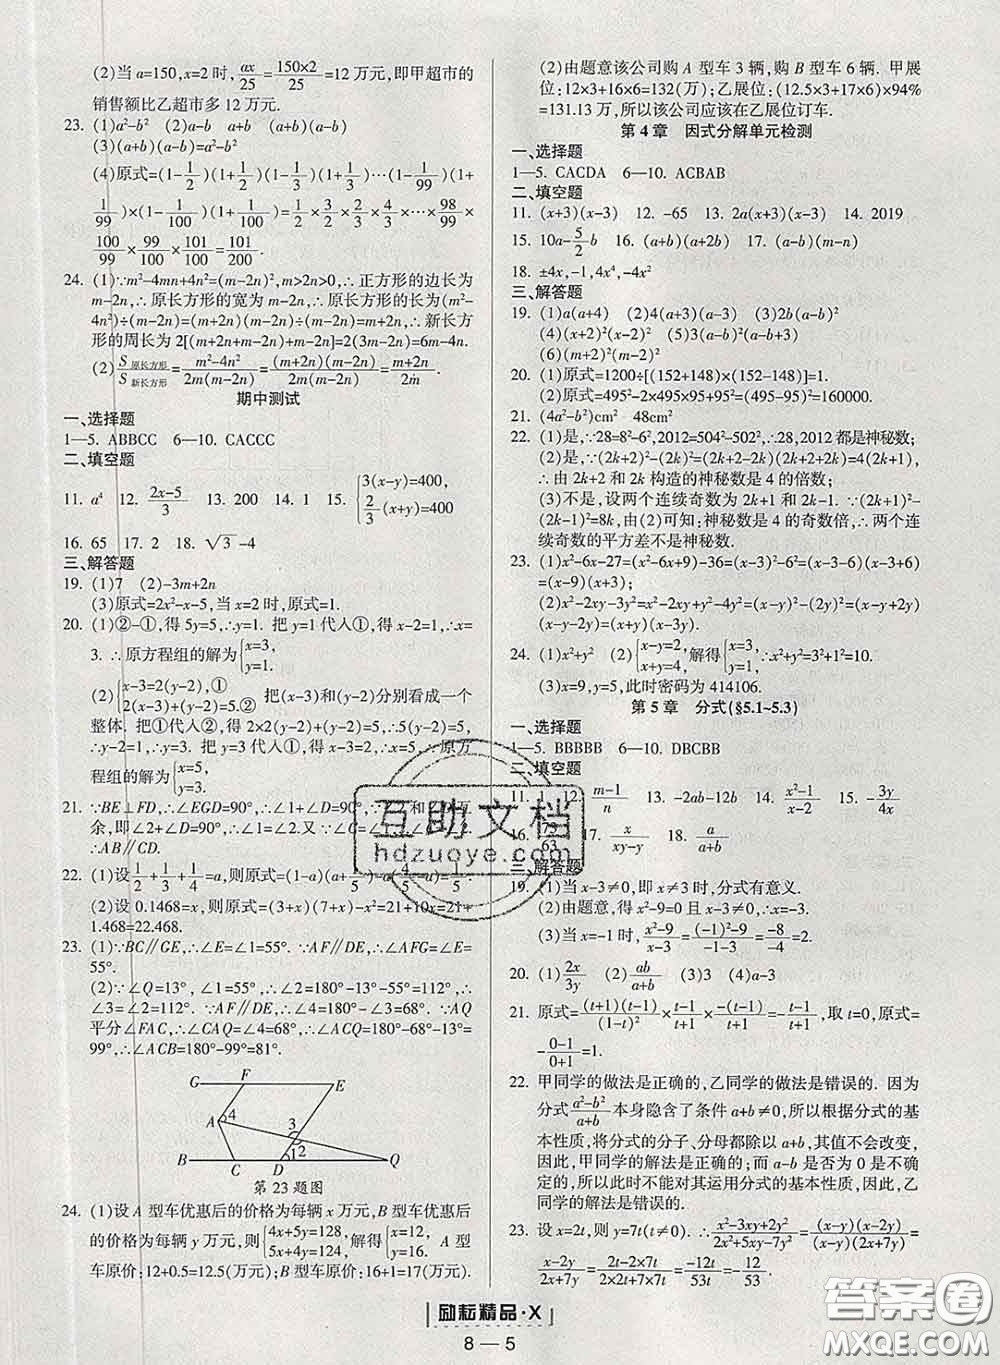 (2)当 a=150,x=2 时, ax/25=150×2/25=12 万元,即甲超市的
销售额比乙超市多 12 万元.
23. (1)a²-b² (2)a-b a+b a²-b²
(3)(a+b)(a-b)=a²-b²
(4)原式=(1-1/2)(1+1/2)(1-1/3)(1+1/3)…(1-1/99)(1+
1/99)×(1-1/100)(1+1/100)=1/2×3/2×2/3×4/3×…×98/99×
100/99×99/100×101/100=101/200.
24. (1)∵m²-4mn+4n²=(m-2n)²,m>2n>0,∴正方形的边长为
m-2n,∴原长方形的宽为 m-2n.∴原长方形的长为(m²-
4n²)÷(m-2n)=(m+2n)(m-2n)÷(m-2n)=m+2n,∴新长方
形的周长为 2[(m+2n+m-2n)+m-2n]=2(3m-2n)=6m-4n.
(2)S原长方形/S新长方形=(m²-4n²)/2m(m-2n)=(m+2n)(m-2n)/2m(m-2n)=(m+2n)/2m.
期中测试
一、选择题
1—5. ABBCC 6—10. CACCC
二、填空题
11. a⁴ 12. (2x-5)/3 13. 200 14. 1 15. {3(x-y)=400,
2/3(x+y)=400
16. 65 17. 2 18. √3-4
三、解答题
19. (1)7 (2)-3m+2n
(3)原式=2x²-x-5,当 x=2 时,原式=1.
20. (1)②-①,得 5y=5,∴y=1. 把 y=1 代入①,得 x-2=1,∴x=
3. ∴原方程组的解为{x=3,
y=1.
(2){x-3=2(y-2),①
把(x-3)和(y-2)分别看成一个
整体. 把①代入②,得 2×2(y-2)+(y-2)=5,∴5(y-2)=5,
∴y-2=1,∴y=3. 把 y=3 代入①,得 x-3=2,∴x=5,∴原方
程组的解为{x=5,
y=3.
21. ∵BE⊥FD,∴∠EGD=90°,∴∠1+∠D=90°,
余,即∠2+∠D=90°,∴∠1=∠2. 又∵∠C=∠1,∴∠C=∠2.
∴AB∥CD.
22. (1)设1/2+1/3+1/4=a,则原式=(1-a)(a+1/5)
(2)设 0.1468=x,则原式=(3+x)(7+x)-x²=21+10x=21+
1.468=22.468.
23. (1)∵BC∥GE,∴∠E=∠1=55°. ∵AF∥DE,∴∠AFG=∠E=
55°.
(2)∵∠Q=13°, ∠1=55°,∴∠2=180°-13°-55°=112°,∴
∠3=∠2=112°. ∵AF∥DE,∴∠4=180°-∠3=68°. ∵AQ
平分∠FAC,∴∠CAQ=∠4=68°,∴∠CAQ=180°-68°-13°=
99°,∴∠ACB=180°-99°=81°.
G F E
A 4 3
1 2
B C D Q
第 23 题图
24. (1)设 A 型车优惠后的价格为每辆 x 万元,B 型车优惠后
的价格为每辆 y 万元,则{4x+5y=128,
5x+4y=124,
解得{x=12,
y=16.
A 型
车原价:12+0.5=12.5(万元);B 型车原价:16+1=17(万元).
(2)由题意该公司购 A 型车 3 辆,购 B 型车 6 辆. 甲展
位:12×3+16×6=132(万);乙展位:(12.5×3+17×6)×94%
=131.13 万,所以该公司应该在乙展位订车.
第 4 章 因式分解单元检测
一、选择题
1—5. CACDA 6—10. ACBAB
二、填空题
11. (x+3)(x-3) 12. -65 13. 2a(x+3)(x-3) 14. 2019
15. 10a-5/2b 16. (a+b)(a+2b) 17. (a-b)(m-n)
18. ±4x,-1,4x⁴,-4x²
三、解答题
19. (1)a(a+4) (2)4(a+3)(a-3) (3)2b(a-b)²
(4)(x+2)²(x-2)² (5)(a-b)(a-b+3)
(6)(m+2)²(m-2)²
20. (1)原式=1200÷[(152+148)×(152-148)]=1.
(2)原式=495²-2×495×95+95²=(495-95)²=160000.
21. (4a²-b²)cm² 48cm²
22. (1)是,∵28=8²-6²,2012=504²-502²,∴28,2012 都是神秘数;
(2)是,∵(2k+2)²-(2k)²=(2k+2-2k)(2k+2+2k)=4(2k+1),
∴由 2k+2 和 2k 构造的神秘数是 4 的倍数;
(3)不是,设两个连续奇数为 2k+1 和 2k-1. ∵(2k+1)²-
(2k-1)²=8k,由(2)可知:神秘数是 4 的奇数倍,∴两个连
续奇数的平方差不是神秘数.
23. (1)x²-6x-27=(x²-6x+9)-36=(x-3)²-6²=(x-3-6)(x-3+6)
=(x-9)(x+3);
(2)x²-2xy-3y²=(x²-2xy+y²)-4y²=(x-y)²-(2y)²=(x-y+2y)
(x-y-2y)=(x+y)(x-3y).
24. (1)x²+y² (2){x-y=2,
x+y=4,
解得{x=3,
y=1.
∴x²+y²=3²+1²=10.
(3)x=9,y=5,此时密码为 414106.
第 5 章 分式(§5.1~5.3)
一、选择题
1—5. BBBBB 6—10. DBCBB
二、填空题
11. 1 12. (m-1)/n 13. -2ab-12b 14. (x²-1)/(x-2) 15. -3y/4x
16. 63 17. x/(xy-y) 18. a/(a+b)
三、解答题
19. (1)当 x-3≠0,即 x≠3 时,分式有意义.
(2)由题意,得 x²-9=0 且 x-3≠0,∴x=-3.
(3)当 x=-1 时,(x²-9)/(x-3)=((-1)²-9)/(-1-3)=-8/-4=2.
20. (1)2x/3y (2)ab/(a+b) (3)4 (4)a-3
21. 原式=(t+1)(t-1)/(1-t)²×(t-1)/(t+1)×(t-1)/(t+1)=-(t-1)/(t+1),取 t=0,原式=
-(0-1)/(0+1)=1.
22. 甲同学的做法是正确的,乙同学的做法是错误的. 因为
分式(a²-b²)/(a+b)本身隐含了条件 a+b≠0,所以根据分式的基
本性质,将分式的分子、分母都除以 a+b,其值不会改变,
因此,甲同学的解法是正确的;而 a-b 是否为 0 是不确
定的,所以不能对其运用分式的基本性质,因此,乙
同学的解法是错误的.
23. 设 x=2t,则 y=7t(t≠0). ∴(x²-3xy+2y²)/(2x²+5xy-7y²)=(x-y)(x-2y)/(x-y)(2x+7y)=
(x-2y)/(2x+7y)=(2t-2×7t)/(2×2t+7×7t)=-12t/53t=-12/53.
互助文档
hdzuoye.com
励耘精品·X
8—5
答案圈
MXQE.COM